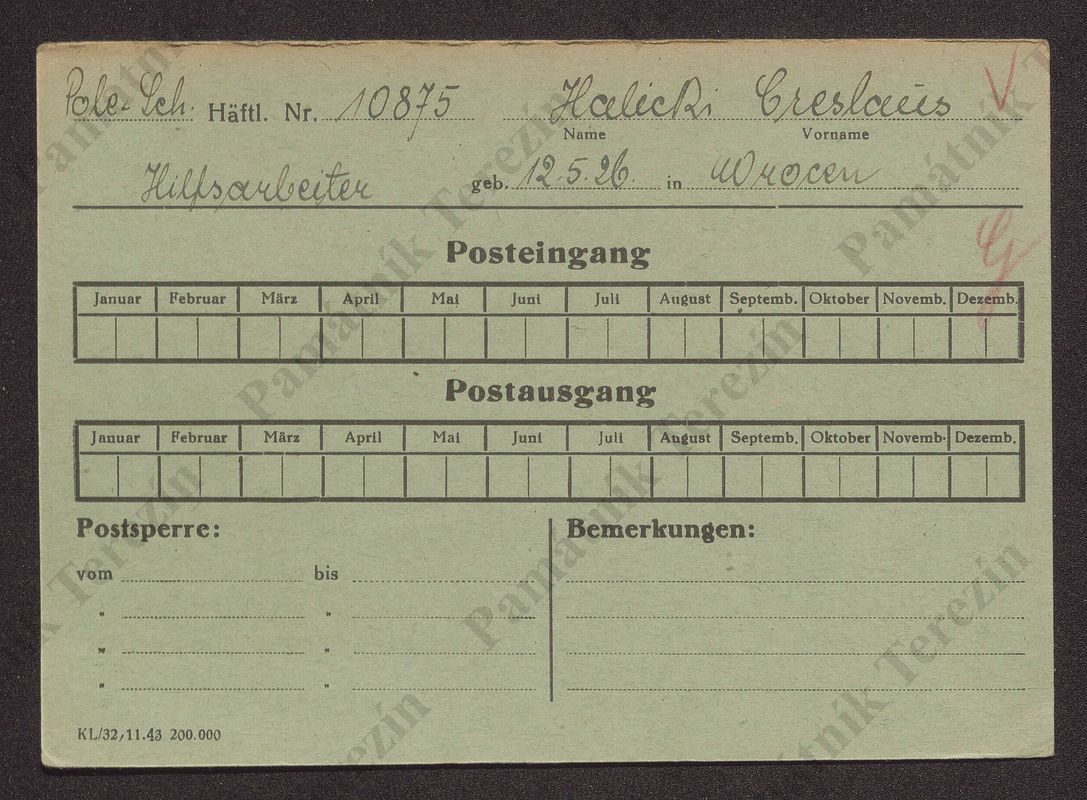 Pole-Sch. Häftl. Nr. 10875 Halicki Creslaus
Name Vorname
Hilfsarbeiter geb. 12.5.26. in Wrocen
Posteingang
Januar Februar März April Mai Juni Juli August Septemb. Oktober Novemb. Dezemb.
Postausgang
Januar Februar März April Mai Juni Juli August Septemb. Oktober Novemb. Dezemb.
Postsperre: Bemerkungen:
vom bis
" "
" "
" "
KL/32,11.43 200.000
Památník Terezín